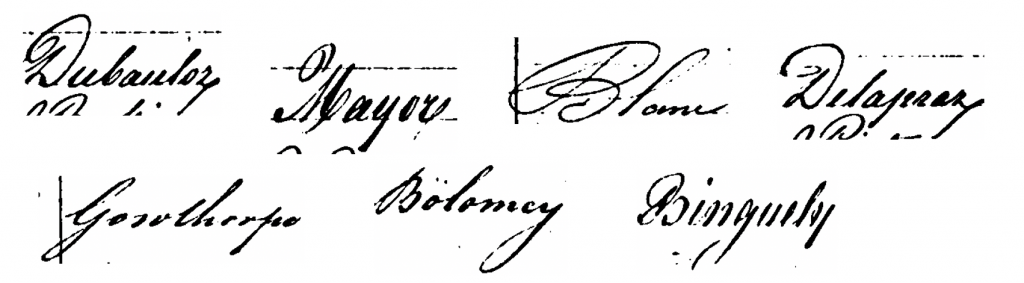 Dubauloz Mayor Blanc Delapraz
Gowthorpe Bolomey Binguely